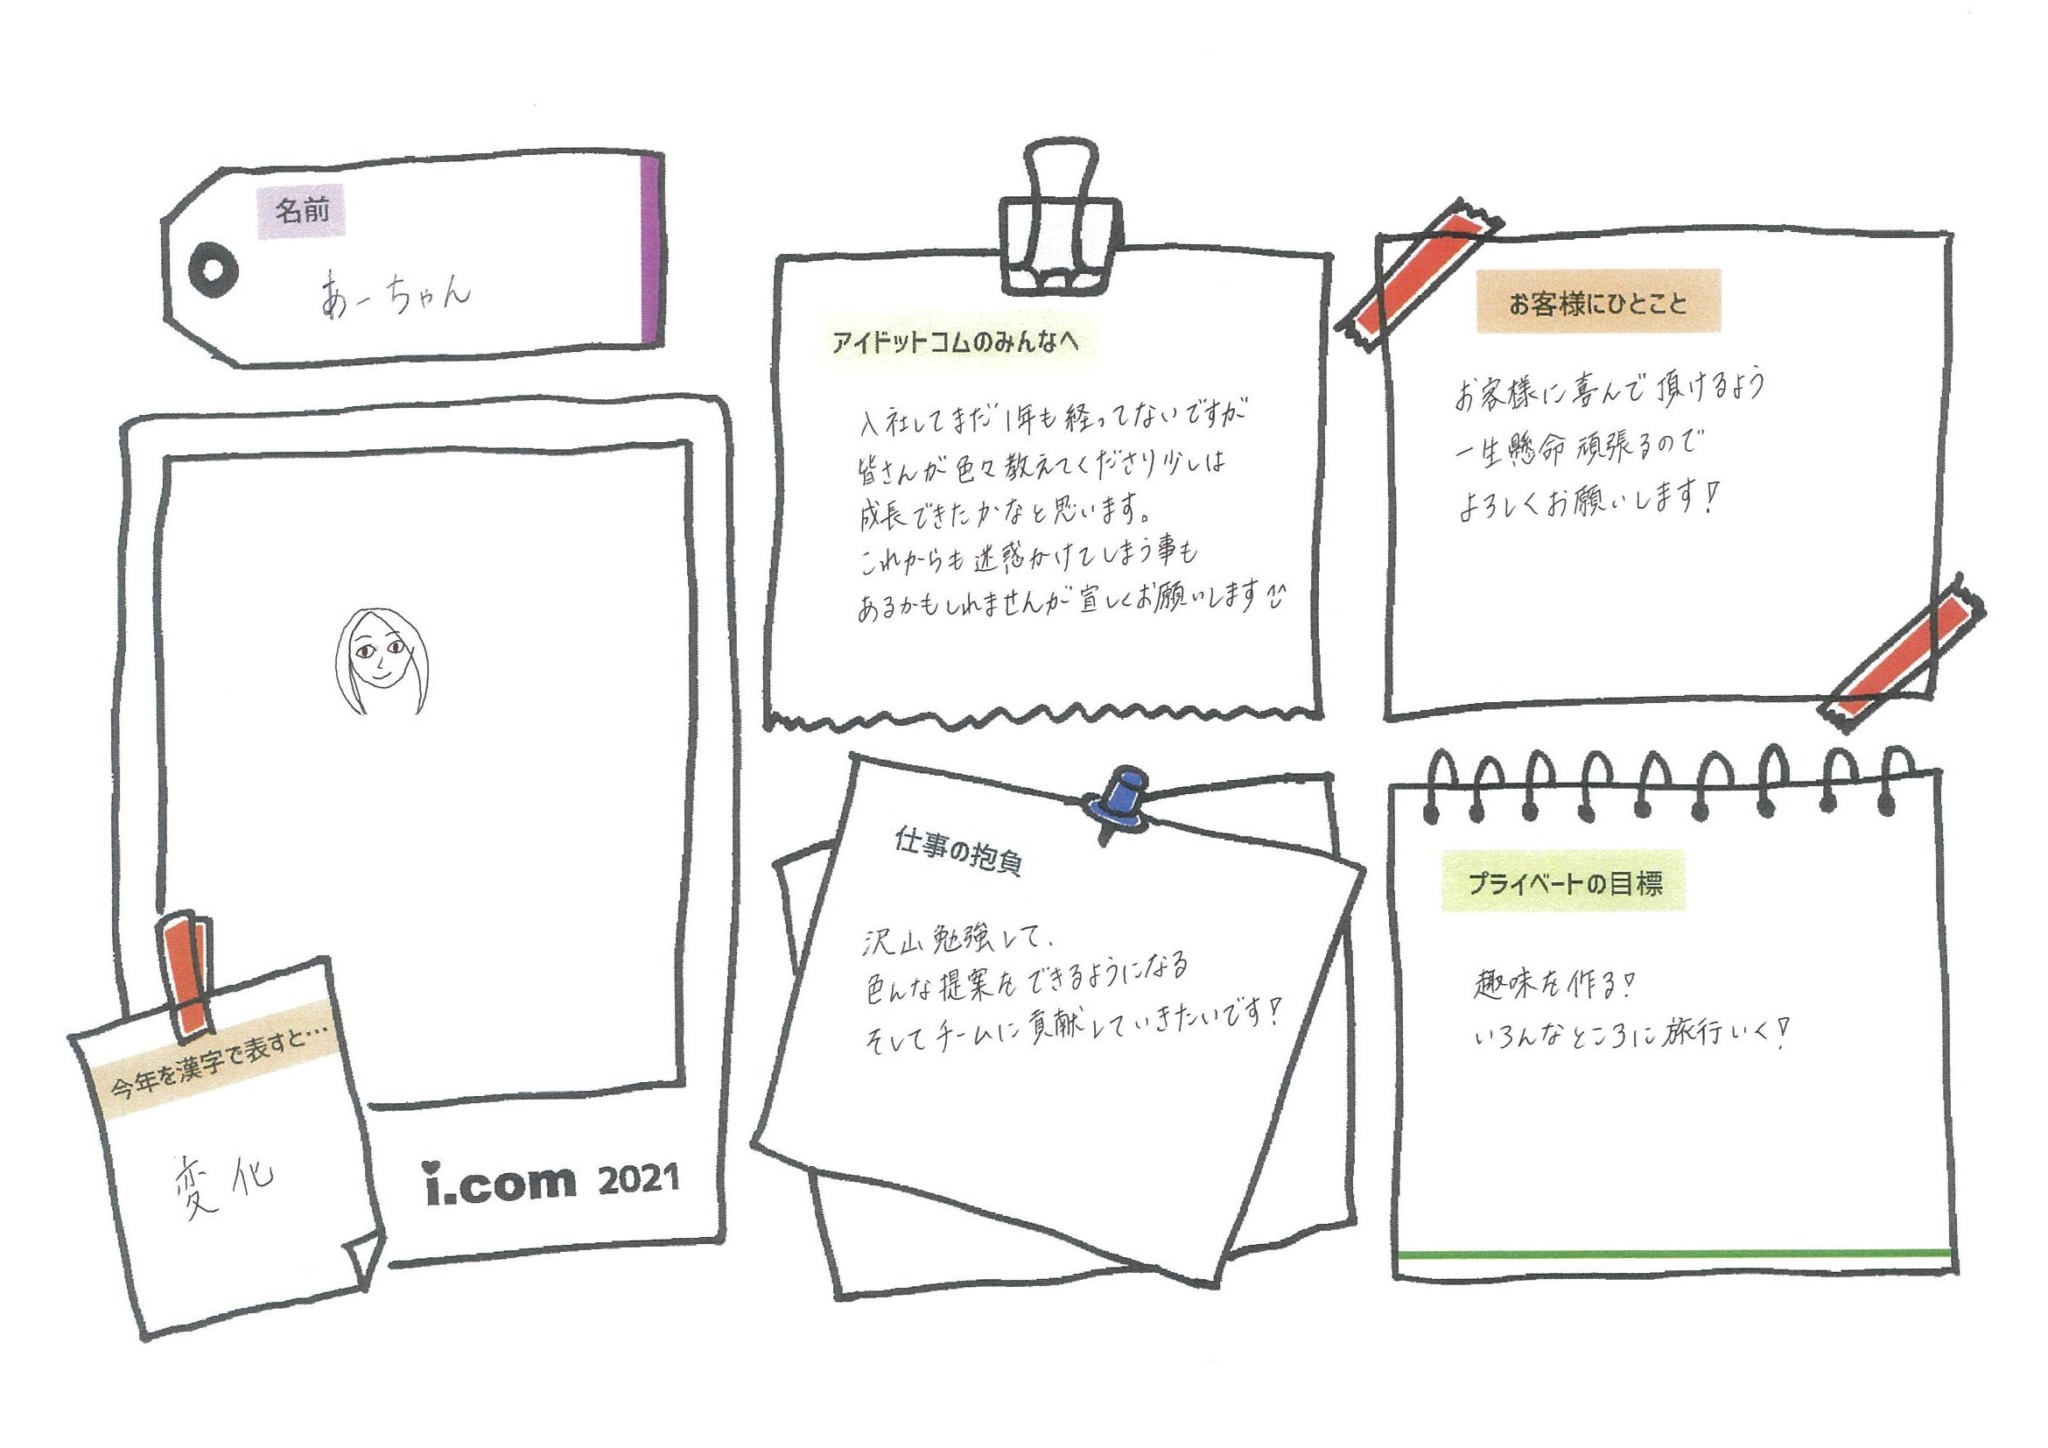 名前
あーちゃん
アイドットコムのみんなへ
入社してまだ1年も経ってないですが
皆さんが色々教えてくださり少しは
成長できたかなと思います。
これからも迷惑かけてしまう事も
あるかもしれませんが宜しくお願いします
お客様にひとこと
お客様に喜んで頂けるよう
一生懸命頑張るので
よろしくお願いします!
仕事の抱負
沢山勉強して、
色んな提案をできるようになる
そしてチームに貢献していきたいです!
プライベートの目標
趣味を作る!
いろんなところに旅行いく!
今年を漢字で表すと…
変化
i.com 2021